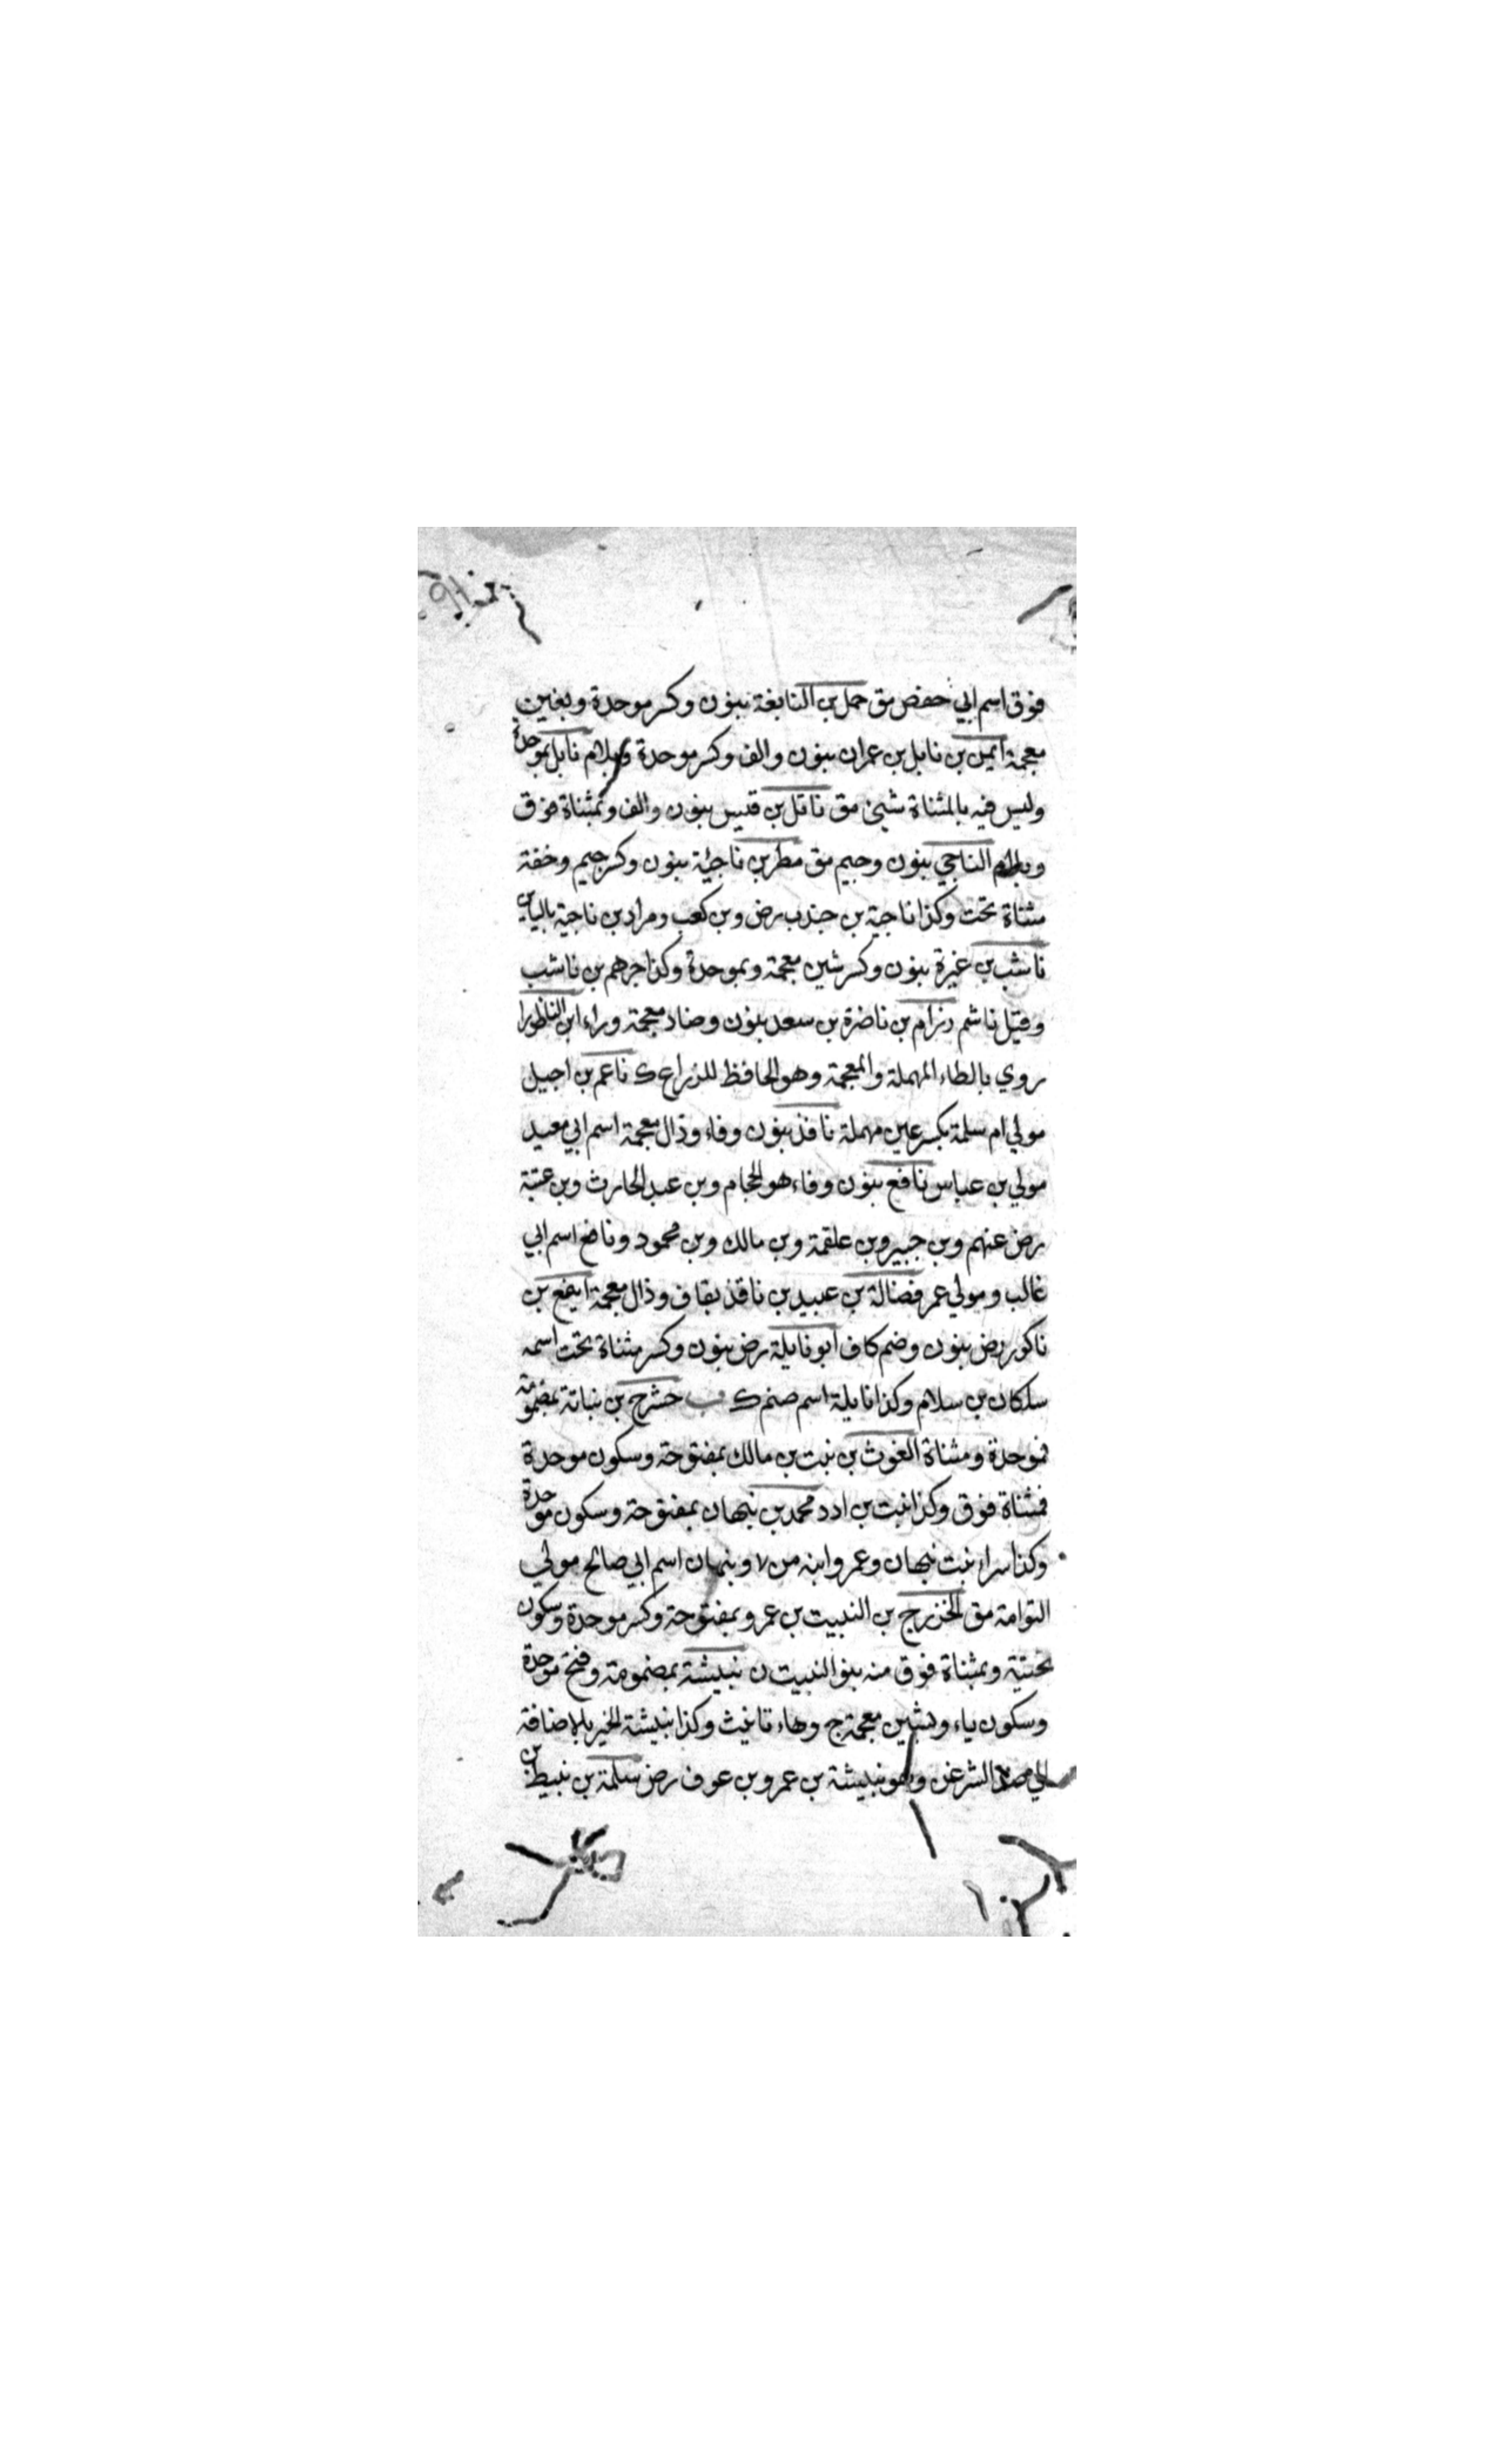 فوق اسم ابي حفص مق حمل بن النابغة بنون وكسر موحدة وبغين
معجمة ايمن بن نابل بن عمران بنون والف وكسر موحدة وبلام نابل بموحدة
وليس فيه بالمثناة شيئ مق ناتل بن قيس بنون والف وبمثناة فوق
وبلام الناجي بنون وجيم مق مطر بن ناجية بنون وكسر جيم وخفة
مثناة تحت وكذا ناجية بن جندب رض وبن كعب ومراد بن ناجية بالياء
ناشب بن غيرة بنون وكسر شين معجمة وبموحدة وكذا جرهم بن ناشب
وقيل ناشم رزام بن ناضرة بن سعد بنون وضاد معجمة وراء ابن الناطورا
روي بالطاء المهملة والمعجمة وهو الحافظ للزراع ك ناعم بن اجيل
مولي ام سلمة بكسر عين مهملة نافذ بنون وفاء وذال معجمة اسم ابي معبد
مولي بن عباس نافع بنون وفاء هو الحجام وبن عبد الحارث وبن عتبة
رض عنهم وبن جبير وبن علقمة وبن مالك وبن محمود ونافع اسم ابي
غالب ومولي عمر فضالة بن عبيد بن ناقذ بقاف وذال معجمة ايفع بن
ناكور رض بنون وضم كاف ابو نايلة رض بنون وكسر مثناة تحت اسمه
سلكان بن سلام وكذا نايلة اسم صنم ك ب حشرج بن نباتة بمضمومة
فموحدة ومثناة الغوث بن نبت بن مالك بمفتوحة وسكون موحدة
فمثناة فوق وكذا نبت بن ادد محمد بن نبهان بمفتوحة وسكون موحدة
وكذا سراء بنت نبهان وعمرو ابنه من لا ونبهان اسم ابي صالح مولي
التوامة مق الخزرج بن النبيت بن عمرو بمفتوحة وكسر موحدة وسكون
تحتية وبمثناة فوق منه بنو النبيت ن نبيشة بمضمومة وفتح موحدة
وسكون ياء وبشين معجمة ج وهاء تانيث وكذا نبيشة الخير بالاضافة
الي ضد الشر عن وهو نبيشة بن عمرو بن عوف رض سلمة بن نبيط بن